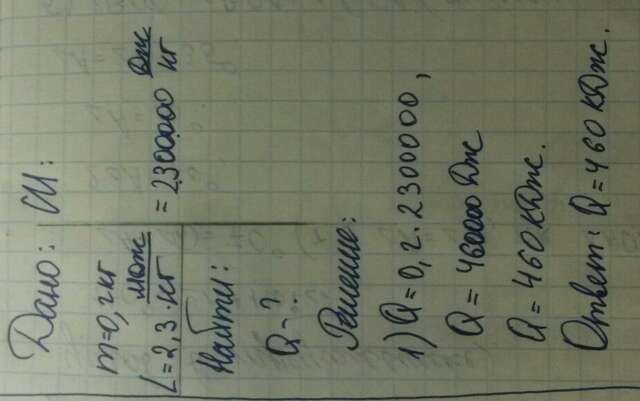 Дано: СИ:
m=0,2кг
L=2,3 МДж/кг = 2300000 Дж/кг
Найти:
Q-?
Решение:
1) Q=0,2·2300000,
Q=460000 Дж
Q=460 кДж.
Ответ: Q=460 кДж.